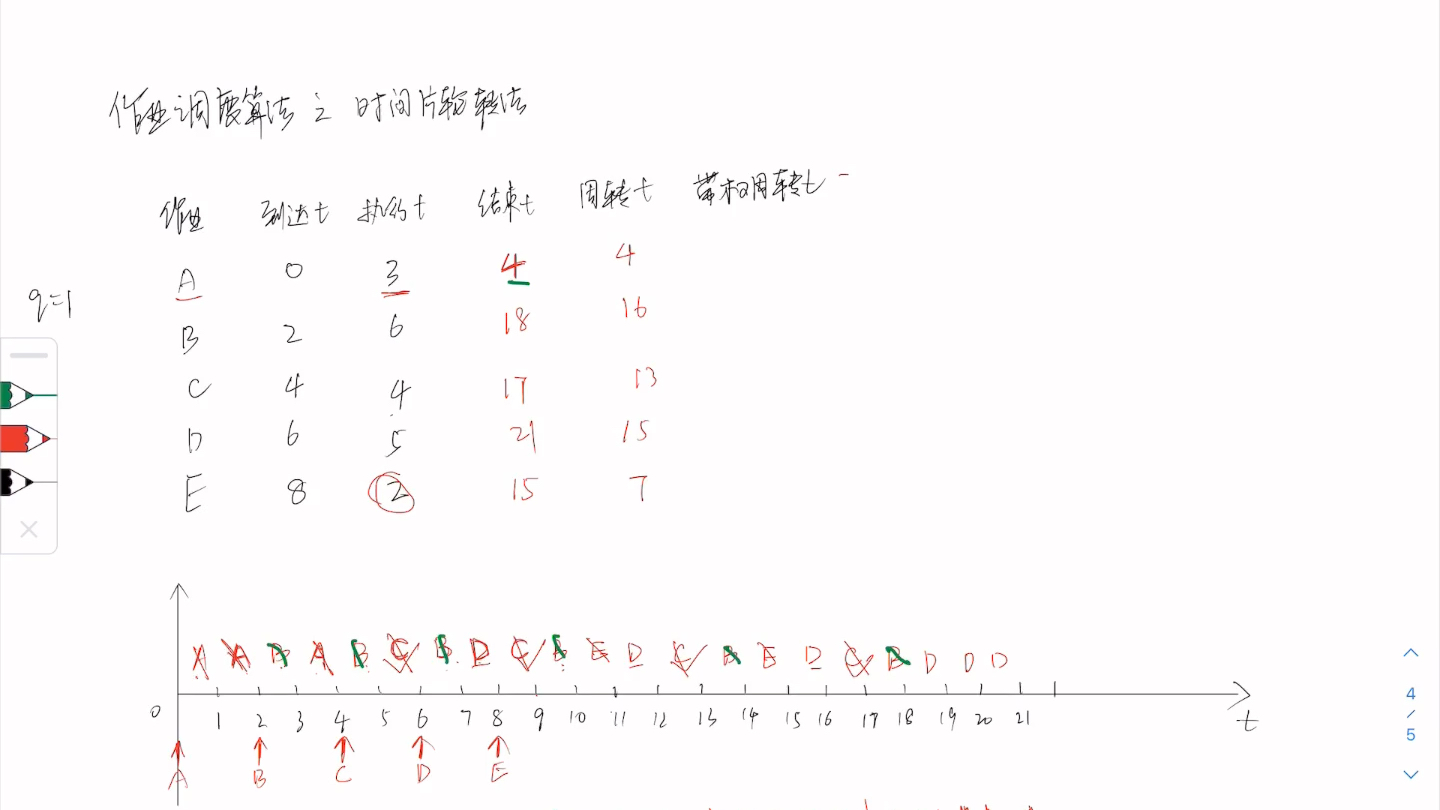 作业调度算法之 时间片轮转法
作业 到达t 执行t 结束t 周转t 带权周转t
A 0 3 4 4
q=1
B 2 6 18 16
C 4 4 17 13
D 6 5 21 15
E 8 2 15 7
A A B A B C B D C B E D C B E D C B D D D
0 1 2 3 4 5 6 7 8 9 10 11 12 13 14 15 16 17 18 19 20 21 t
A B C D E
4
/
5